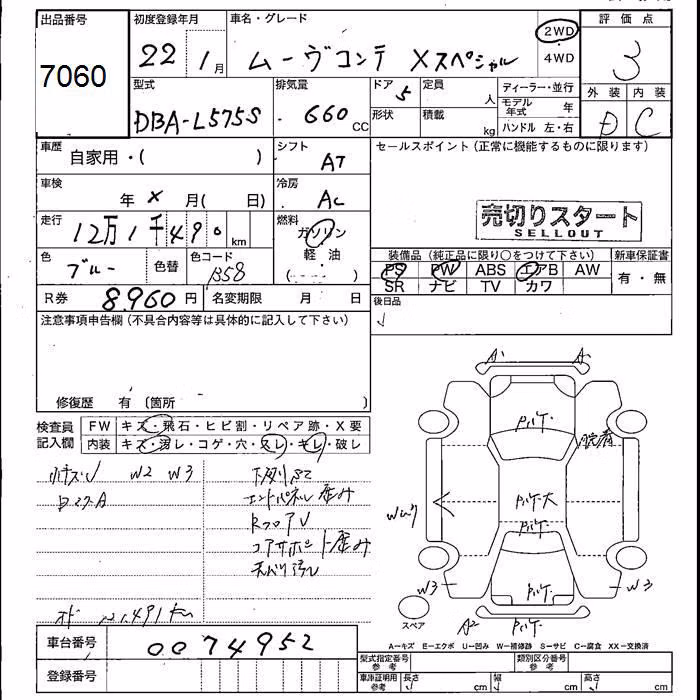 出品番号 初度登録年月 車名・グレード 評価点
7060 22年 1月 ムーヴコンテ Xスペシャル 2WD 4WD 3
型式 排気量 ドア 定員 ディーラー・並行 外装 内装
DBA-L575S 660cc 5 人 モデル年式 年 D C
形状 積載 kg ハンドル 左・右
車歴 自家用・( ) シフト AT セールスポイント(正常に機能するものに限ります)
車検 年 X 月( 日) 冷房 AC
売切りスタート
SELLOUT
走行 12万1千490km 燃料 ガソリン 軽油 ( )
装備品(純正品に限り○をつけて下さい) 新車保証書
色 ブルー 色替 色コード B58
PS PW ABS エアB AW 有・無
SR ナビ TV カワ
R券 8,960円 名変期限 月 日 後日品
注意事項申告欄(不具合内容等は具体的に記入して下さい)
修復歴 有 〔箇所 〕
検査員記入欄 FW キズ・飛石・ヒビ割・リペア跡・X要
内装 キズ・汚レ・コゲ・穴・スレ・キレ・破レ
小キズ・U W2 W3 下廻りサビ
エンドパネル歪み
コアサポート歪み
天バリ汚レ
121,491km
A A
W3 W3
A2
スペア
A-キズ E-エクボ U-凹み W-補修跡 S-サビ C-腐食 XX-交換済
車台番号 0074952
登録番号
型式指定番号 参考 類別区分番号 参考
車庫証明用 参考 長さ cm 幅 cm 高さ cm